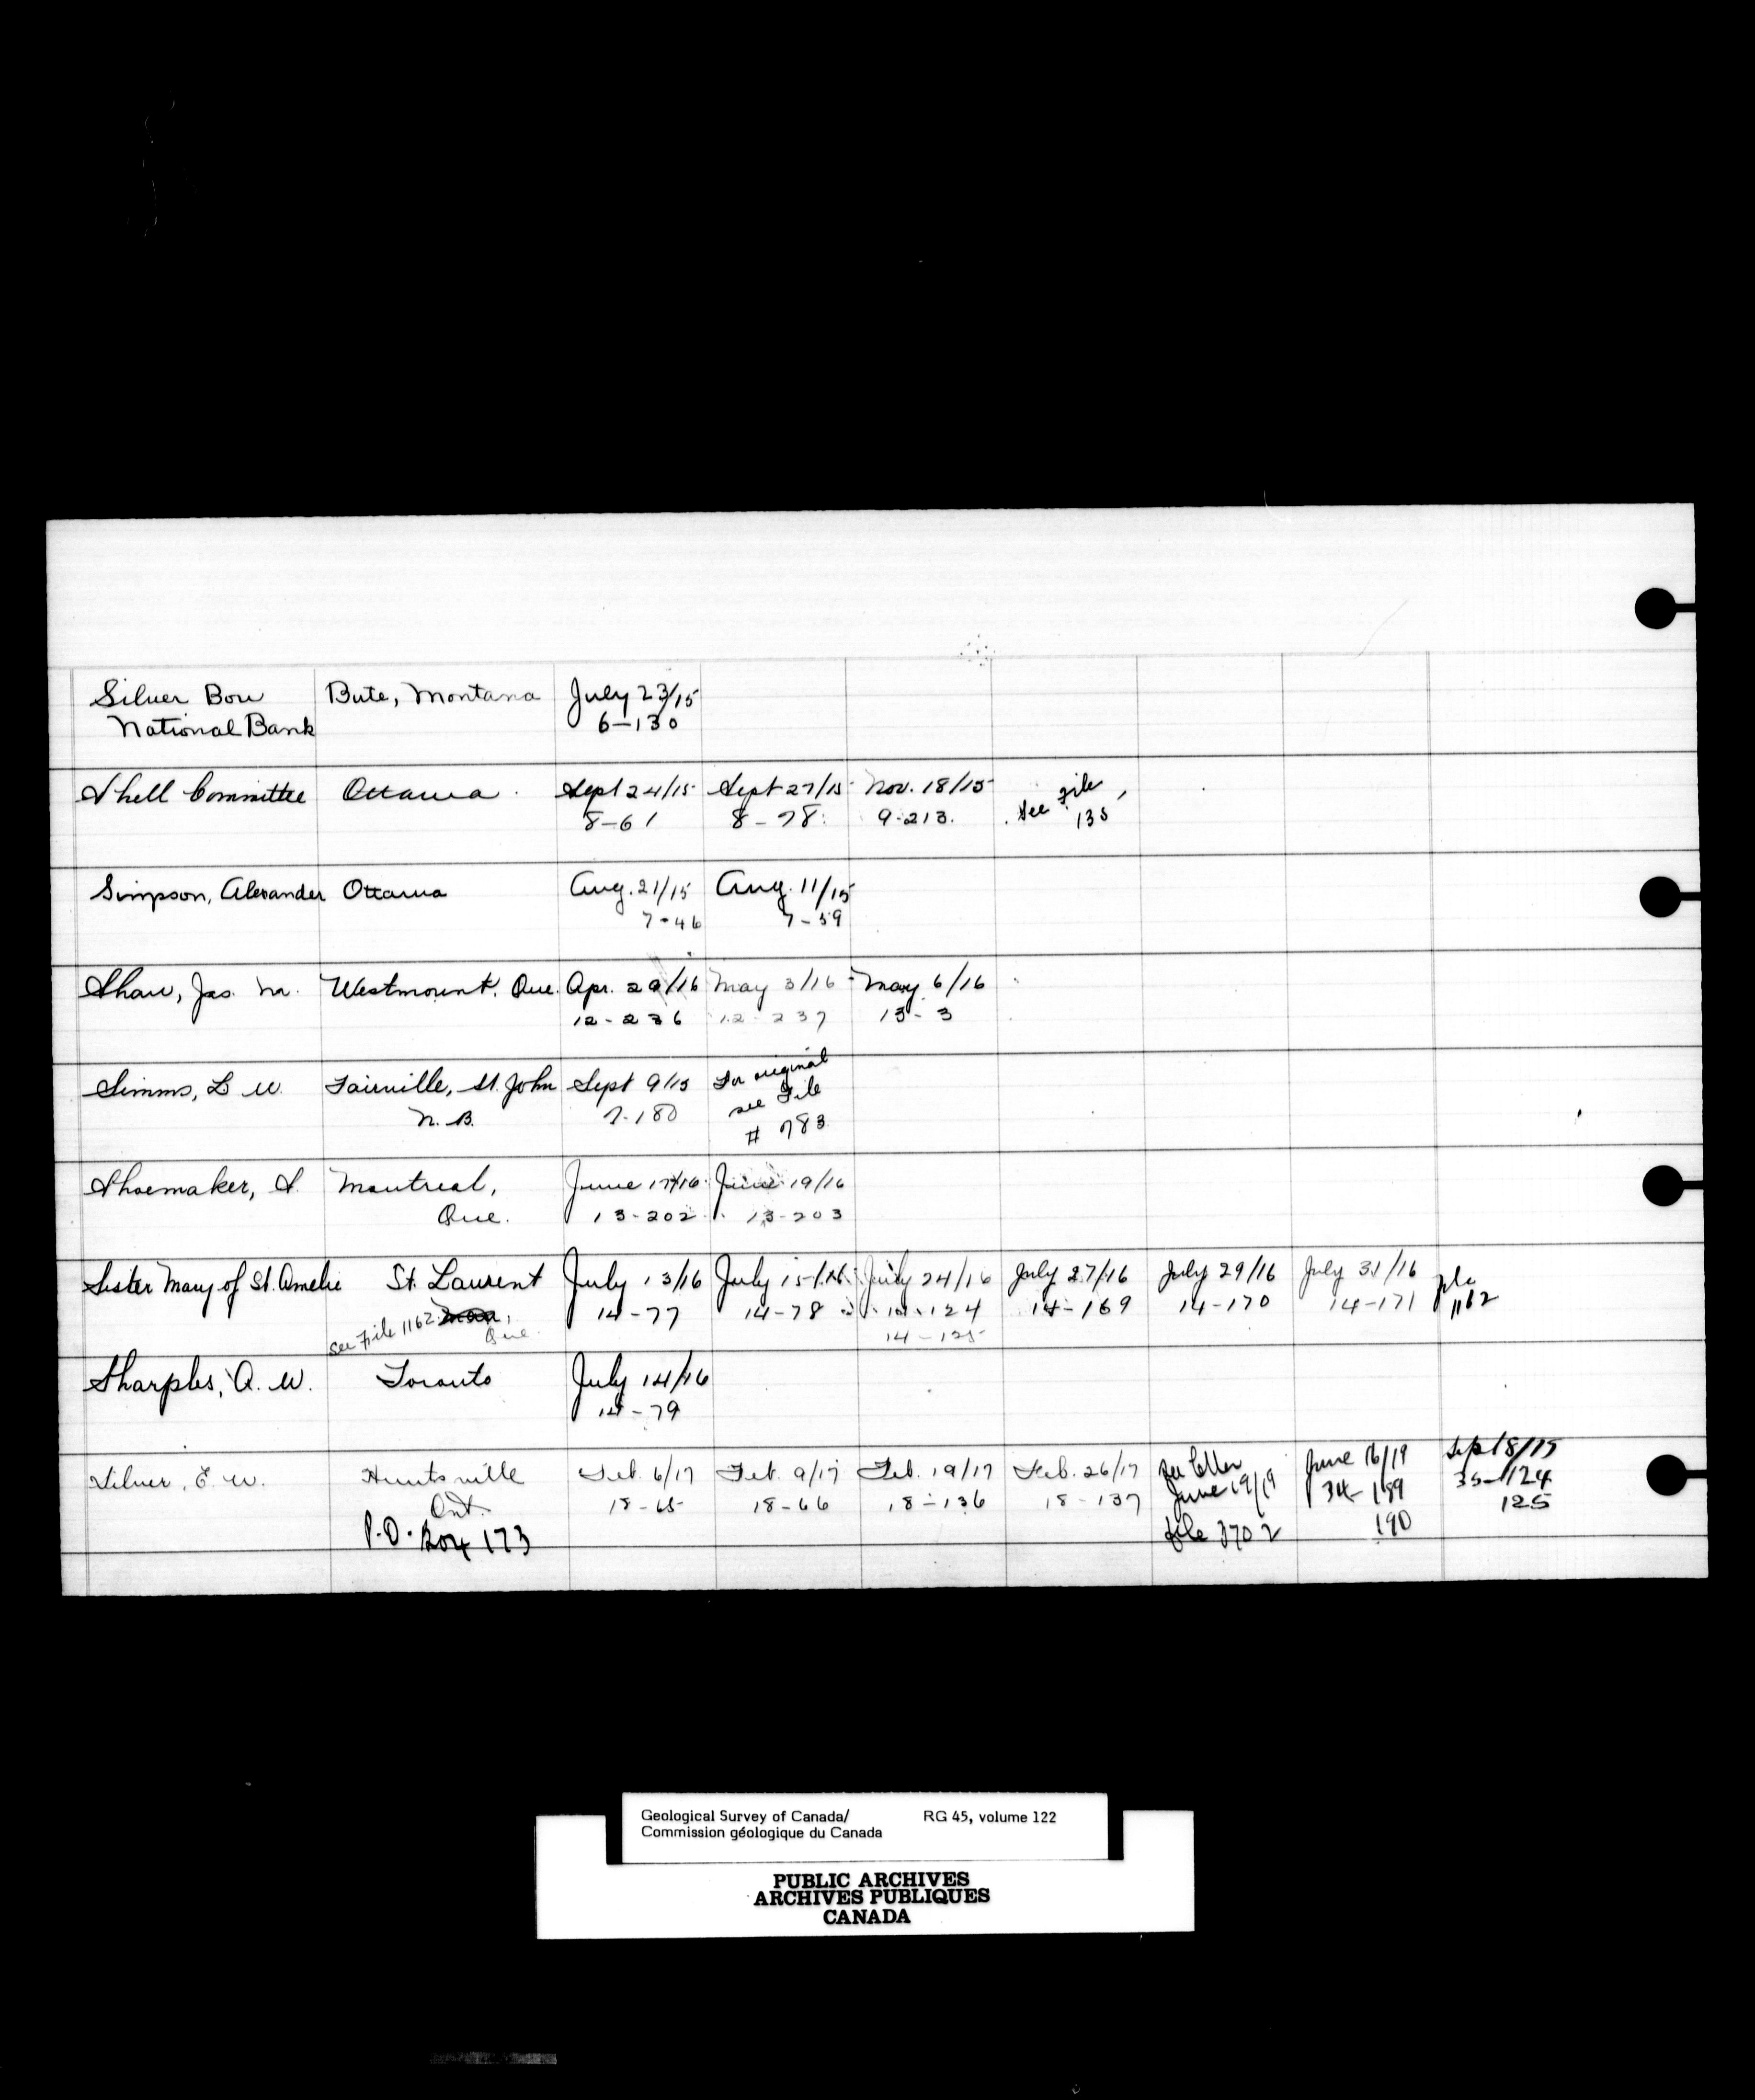 Silver Bow Bute, Montana July 23/15
National Bank 6-130
Shell Committee Ottawa. Sept 24/15 Sept 27/15 Nov. 18/15 See File
8-61 8-78 9-213. 135
Simpson, Alexander Ottawa Aug. 21/15 Aug. 11/15
7-46 7-59
Shaw, Jas. M. Westmount, Que. Apr. 29/16 May 3/16 May 6/16
12-236 12-237 13-3
Simms, L W. Fairville, St. John Sept 9/15 For original
N. B. 7-180 see File
# 783
Shoemaker, A. Montreal, June 17/16 June 19/16
Que. 13-202 13-203
Sister Mary of St. Amelie St. Laurent July 13/16 July 15/16 July 24/16 July 27/16 July 29/16 July 31/16 file
See File 1162 Que. 14-77 14-78 14-124 14-169 14-170 14-171 1162
14-125
Sharples, A. W. Toronto July 14/16
14-79
Silver, E. W. Huntsville Feb. 6/17 Feb. 9/17 Feb. 19/17 Feb. 26/17 See letter June 16/19 Sept 8/19
Ont. 18-65 18-66 18-136 18-137 June 19/19 34-189 35-124
P.O. Box 173 file 3702 190 125
Geological Survey of Canada/ RG 45, volume 122
Commission géologique du Canada
PUBLIC ARCHIVES
ARCHIVES PUBLIQUES
CANADA